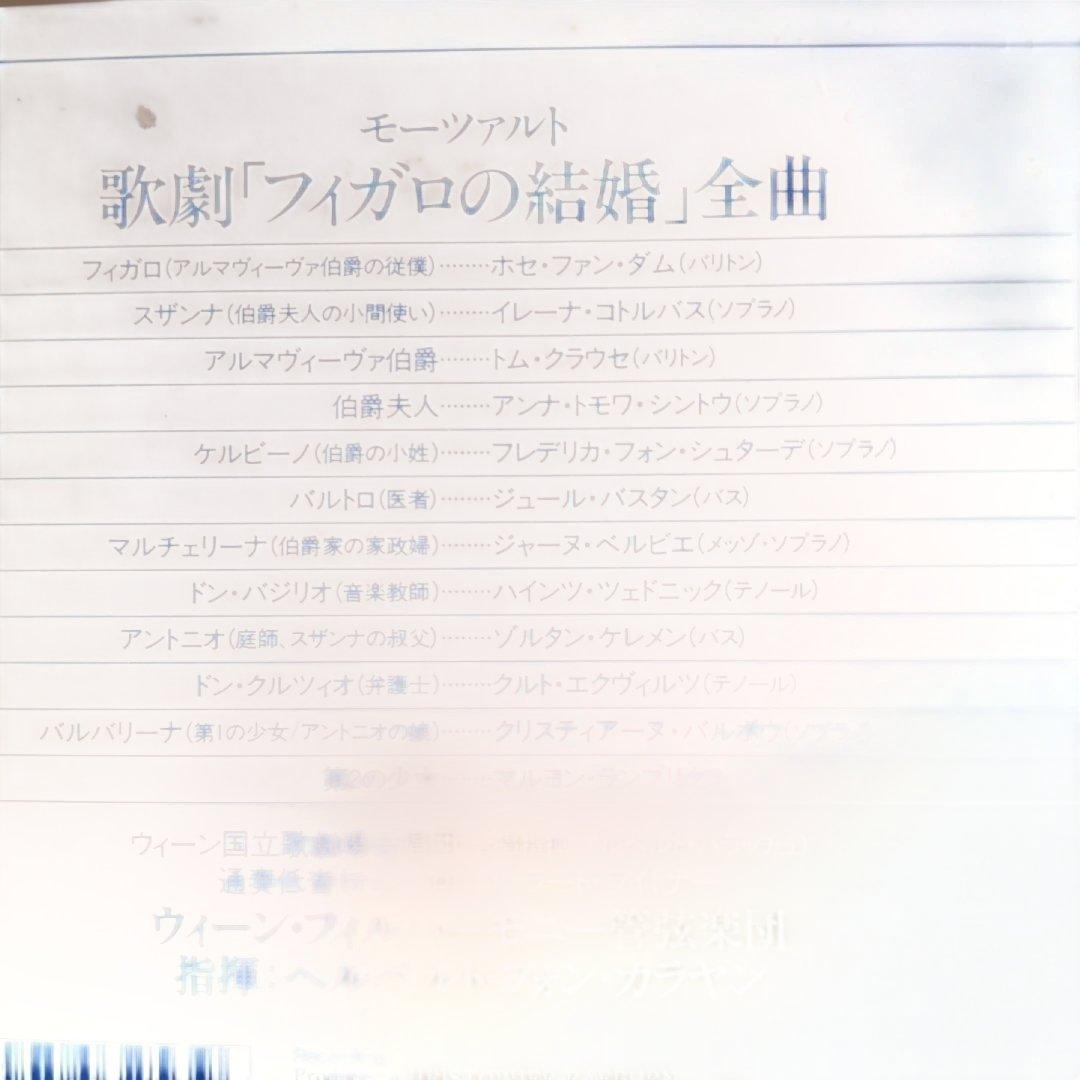 モーツァルト
歌劇「フィガロの結婚」全曲
フィガロ(アルマヴィーヴァ伯爵の従僕)………ホセ・ファン・ダム(バリトン)
スザンナ(伯爵夫人の小間使い)………イレーナ・コトルバス(ソプラノ)
アルマヴィーヴァ伯爵………トム・クラウセ(バリトン)
伯爵夫人………アンナ・トモワ・シントウ(ソプラノ)
ケルビーノ(伯爵の小姓)………フレデリカ・フォン・シュターデ(ソプラノ)
バルトロ(医者)………ジュール・バスタン(バス)
マルチェリーナ(伯爵家の家政婦)………ジャーヌ・ベルビエ(メッゾ・ソプラノ)
ドン・バジリオ(音楽教師)………ハインツ・ツェドニック(テノール)
アントニオ(庭師、スザンナの叔父)………ゾルタン・ケレメン(バス)
ドン・クルツィオ(弁護士)………クルト・エクヴィルツ(テノール)
バルバリーナ(第1の少女/アントニオの娘)………クリスティアーヌ・バルボウ(ソプラノ)
第2の少
ウィーン国立歌
通奏低音
ウィーン・フィルハーモニー管弦楽団
指揮:ヘルベルト・フォン・カラヤン